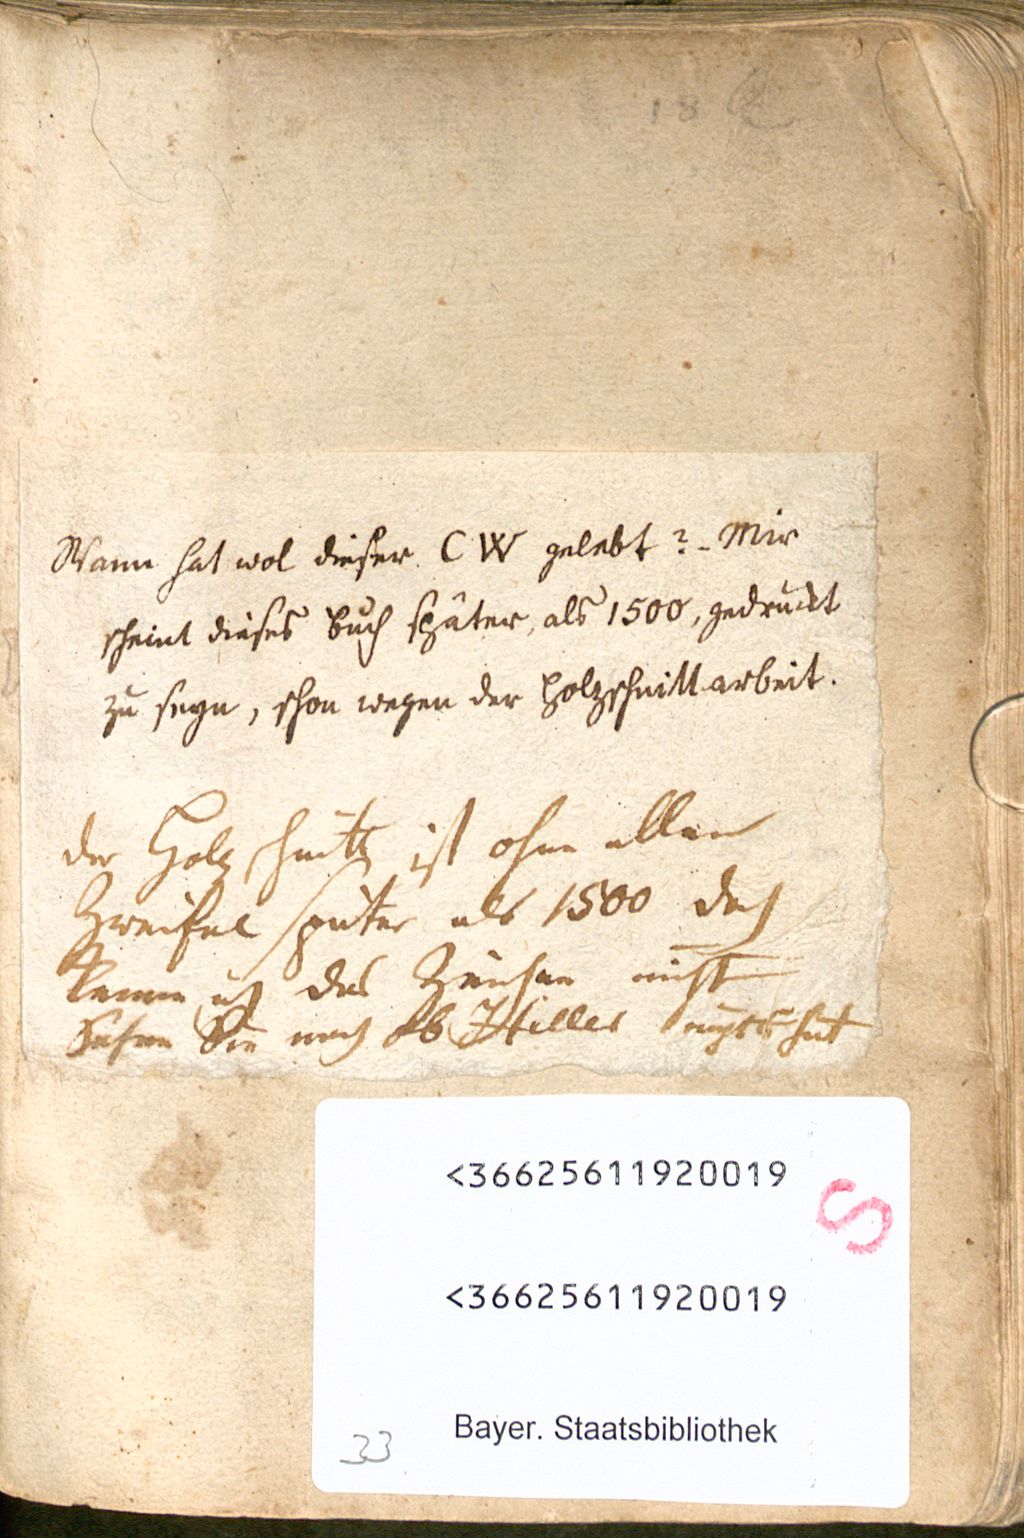 18
Wann hat wol dieser CW gelebt? - Mir
scheint dieses Buch später, als 1500, gedruckt
zu seyn, schon wegen der Holzschnittarbeit.
der Holzschnitt ist ohne allen
Zweifel später als 1500 doch
kenne ich das Zeichen nicht
Sehen Sie nach ob Hiller hat
<36625611920019
S
<36625611920019
Bayer. Staatsbibliothek
33